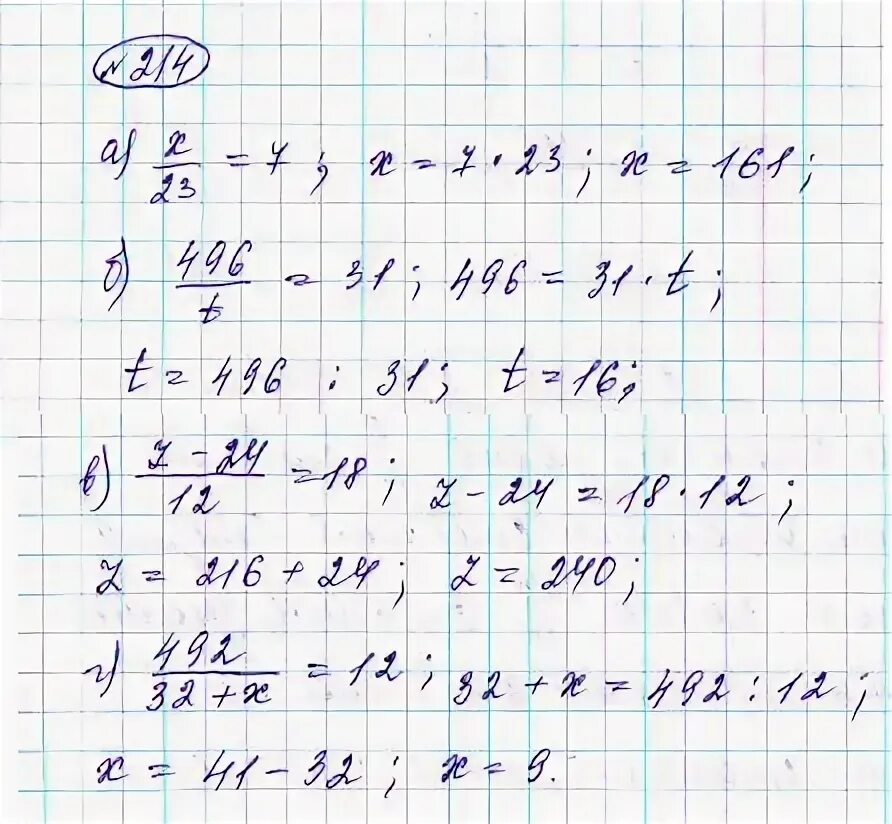 № 214
а) x/23 = 7; x = 7 · 23; x = 161;
б) 496/t = 31; 496 = 31 · t;
t = 496 : 31; t = 16;
в) z - 24/12 = 18; z - 24 = 18 · 12;
z = 216 + 24; z = 240;
г) 492/32 + x = 12; 32 + x = 492 : 12;
x = 41 - 32; x = 9.